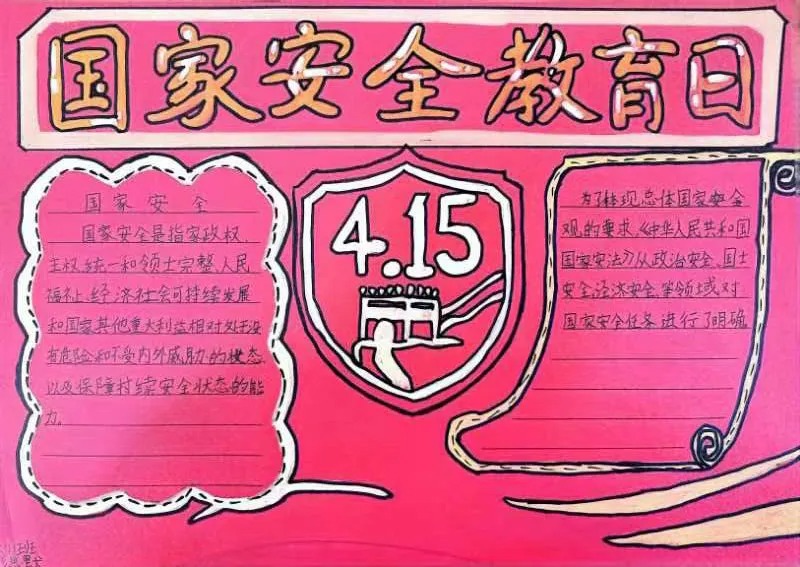 国家安全教育日
国家安全
国家安全是指家政权、
主权、统一和领土完整、人民
福祉、经济社会可持续发展
和国家其他重大利益相对处于没
有危险和不受内外威胁的状态,
以及保障持续安全状态的能
力。
4.15
为了体现总体国家安全
观的要求,《中华人民共和国
国家安法》从政治安全、国土
安全、经济安全、等领域对
国家安全任务进行了明确